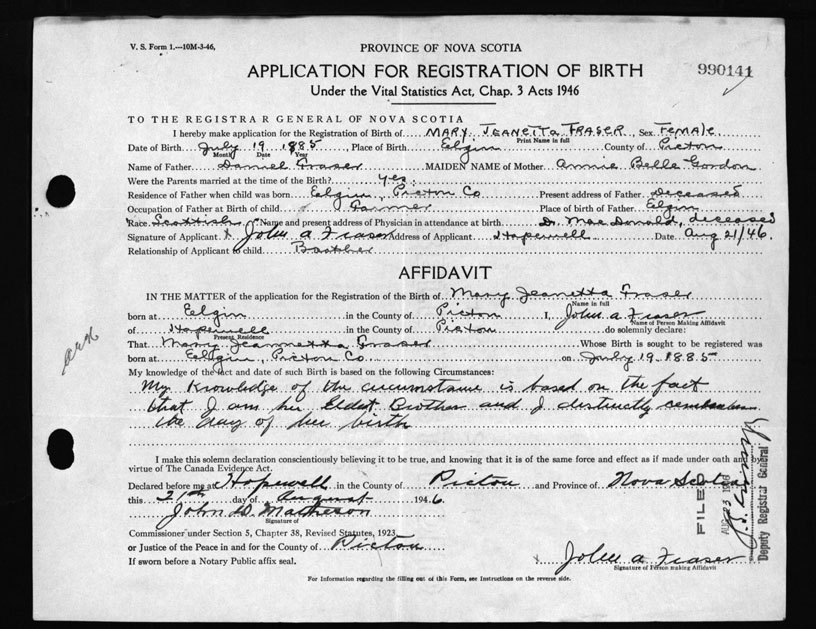 V. S. Form 1.—10M-3-46,
PROVINCE OF NOVA SCOTIA
APPLICATION FOR REGISTRATION OF BIRTH
990141
Under the Vital Statistics Act, Chap. 3 Acts 1946
TO THE REGISTRAR GENERAL OF NOVA SCOTIA
I hereby make application for the Registration of Birth of MARY JEANETTA FRASER, Sex Female
Print Name in full
Date of Birth July 19 1885, Place of Birth Elgin County of Picton
Month Date Year
Name of Father Daniel Fraser MAIDEN NAME of Mother Annie Belle Gordon
Were the Parents married at the time of the Birth? yes.
Residence of Father when child was born Eelgin, Picton Co Present address of Father deceased
Occupation of Father at Birth of child Farmer Place of birth of Father Elgin
Race Scottish Name and present address of Physician in attendance at birth D. MacDonald, deceased
Signature of Applicant x John A Fraser Address of Applicant Hopewell Date Aug 21/46.
Relationship of Applicant to child Brother
AFFIDAVIT
IN THE MATTER of the application for the Registration of the Birth of Mary Jeanetta Fraser
Name in full
born at Eelgin in the County of Picton I, John A Fraser
Name of Person Making Affidavit
of Hopewell in the County of Picton do solemnly declare:
Present Residence
That Mary Jeannetta Fraser Whose Birth is sought to be registered was
born at Eelgin, Picton Co on July 19 1885
My knowledge of the fact and date of such Birth is based on the following Circumstances:
My Knowledge of the circumstance is based on the fact
that I am her Eldest Brother and I distinctly remember
the day of her birth
I make this solemn declaration conscientiously believing it to be true, and knowing that it is of the same force and effect as if made under oath and by
virtue of The Canada Evidence Act.
Declared before me at Hopewell in the County of Picton and Province of Nova Scotia
this 21st day of August 1946
John D. Matheson
Signature of
Commissioner under Section 5, Chapter 38, Revised Statutes, 1923
or Justice of the Peace in and for the County of Picton
If sworn before a Notary Public affix seal.
x John A Fraser
Signature of Person making Affidavit
For Information regarding the filling out of this Form, see Instructions on the reverse side.
FILED
AUG 23 1946
Deputy Registrar General